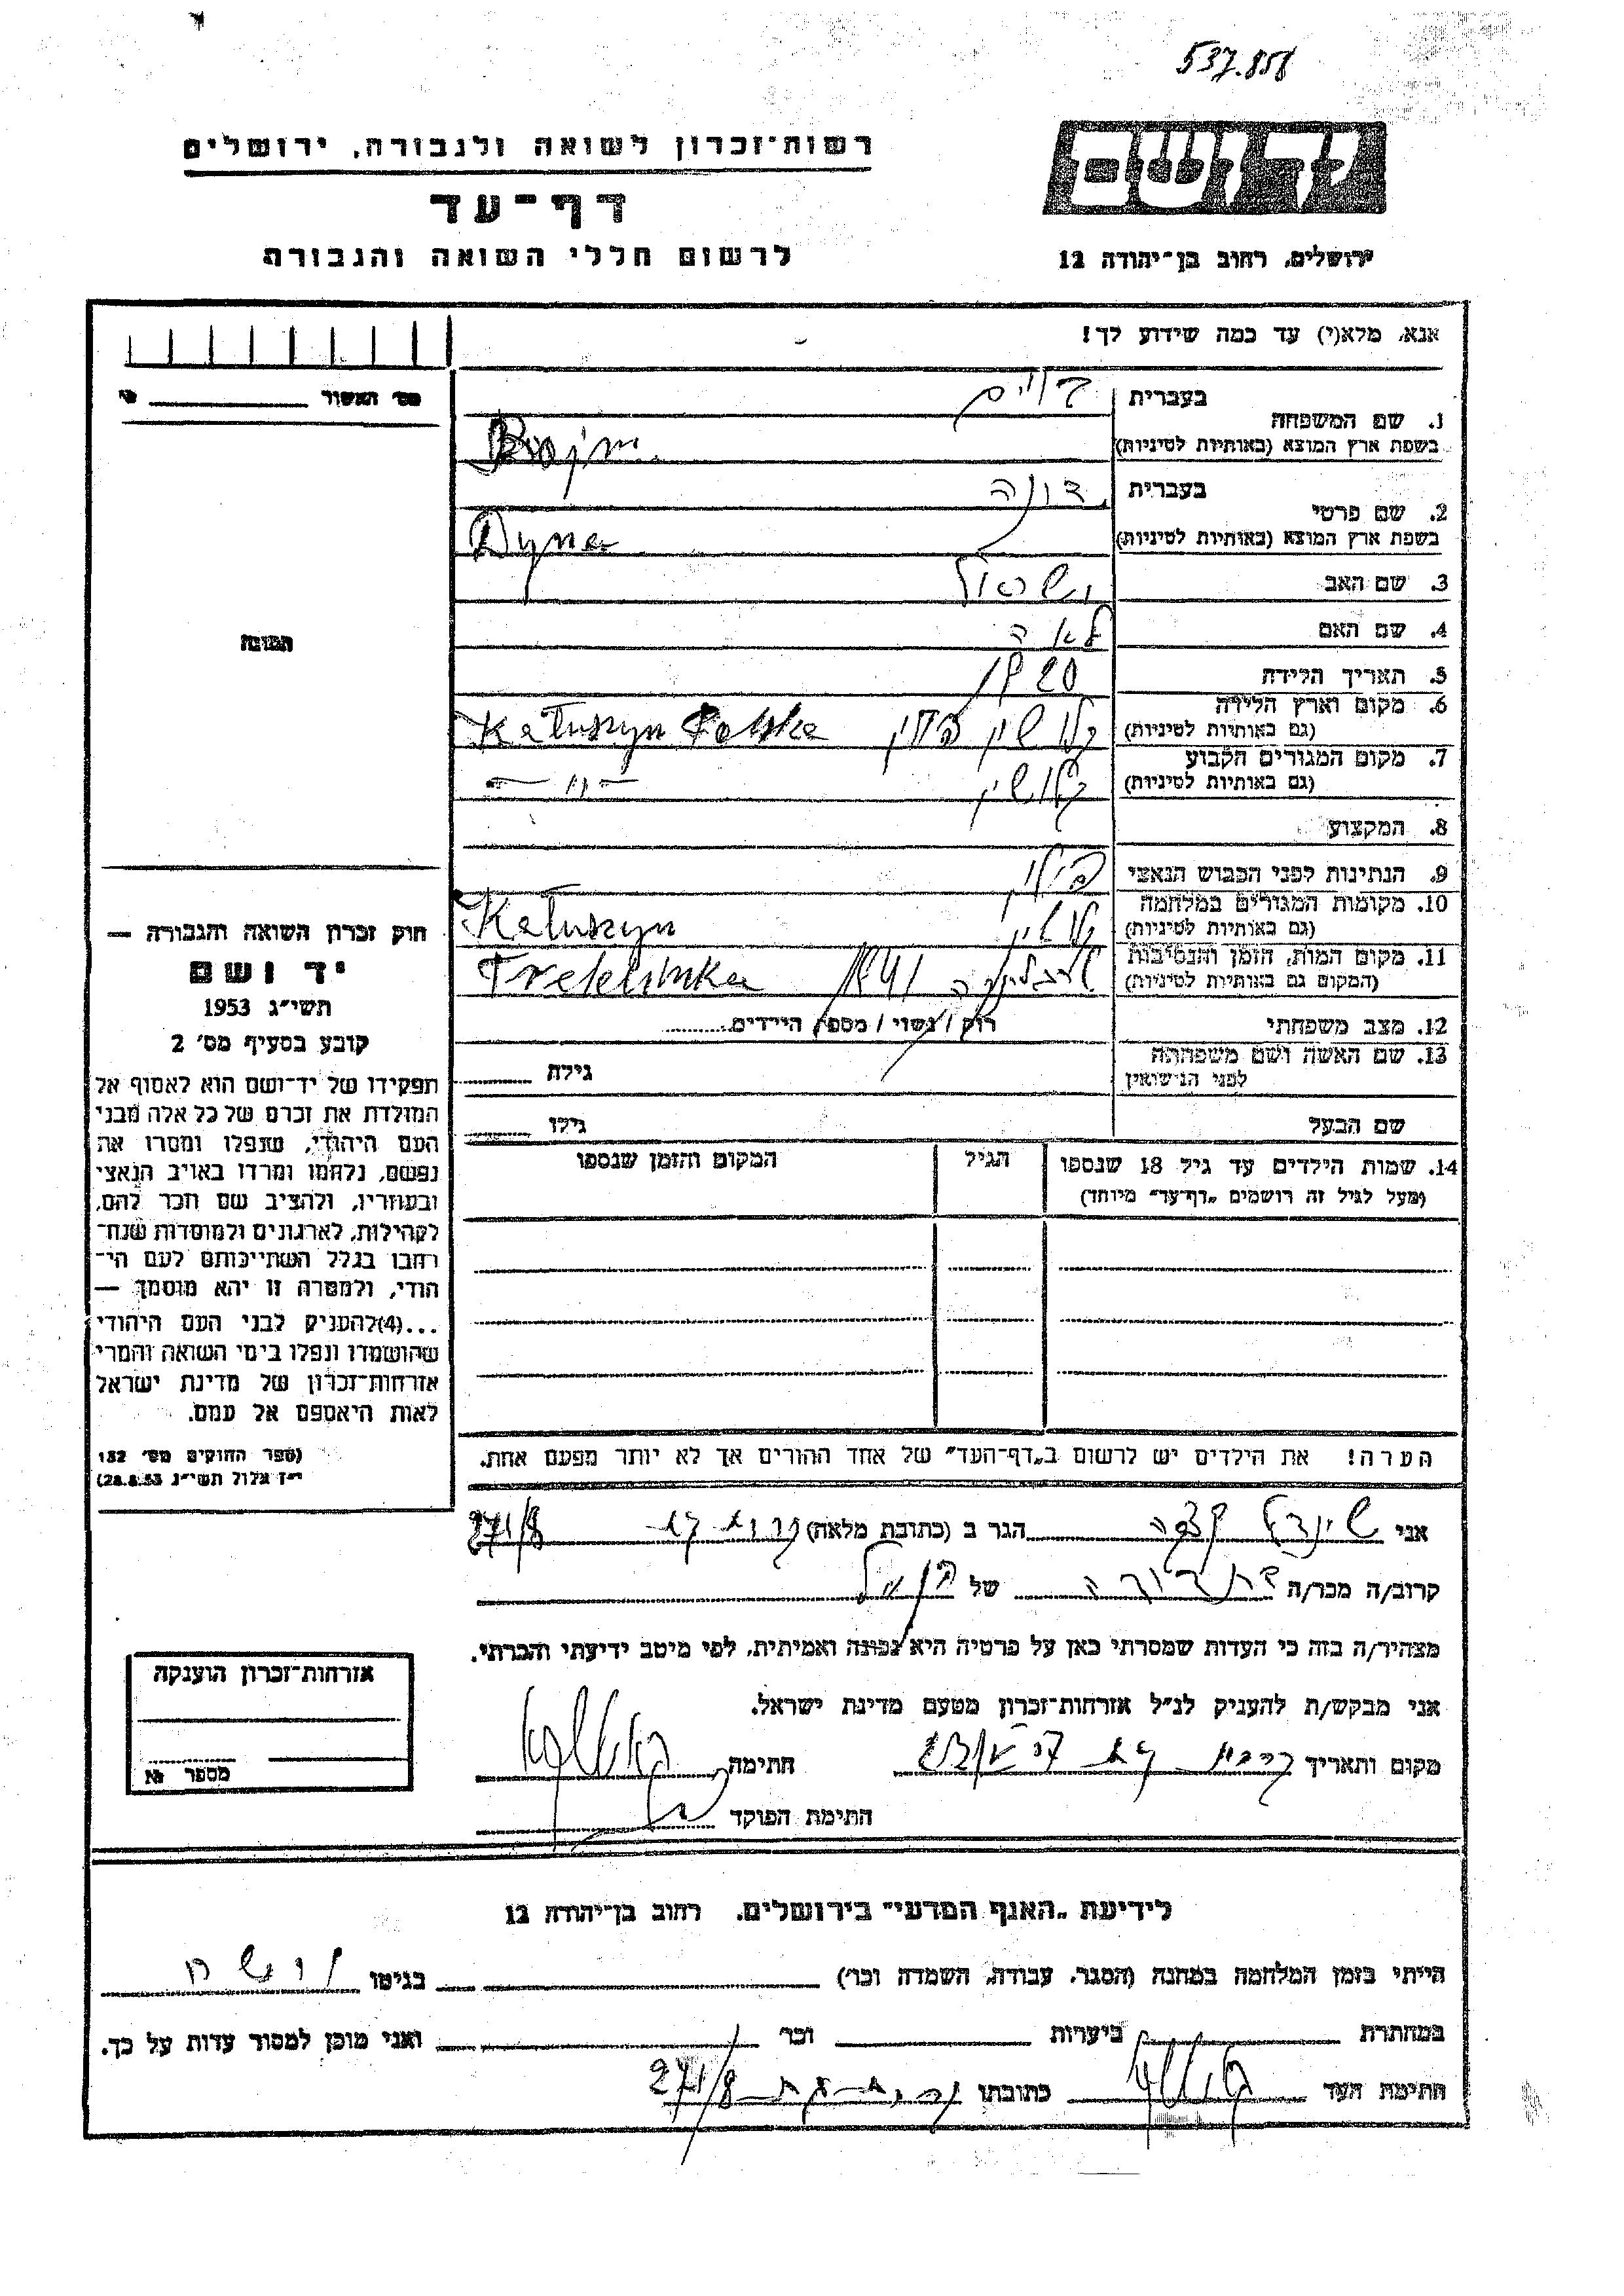 537.858
רשות־זכרון לשואה ולגבורה, ירושלים
דף־עד
לרשום חללי השואה והגבורה
יד ושם
ירושלים, רחוב בן־יהודה 12
אנא, מלא(י) עד כמה שידוע לך!
מס' האשור
1. שם המשפחה
בעברית ברוים
בשפת ארץ המוצא (באותיות לטיניות) Brojm
2. שם פרטי
בעברית דינה
בשפת ארץ המוצא (באותיות לטיניות) Dyna
3. שם האב ישראל
4. שם האם לאה
5. תאריך הלידה 1920
6. מקום וארץ הלידה
(גם באותיות לטיניות) קלושין פולין Kałuszyn Polska
7. מקום המגורים הקבוע
(גם באותיות לטיניות) קלושין —"—
8. המקצוע
9. הנתינות לפני הכבוש הנאצי פולין
10. מקומות המגורים במלחמה
(גם באותיות לטיניות) קלושין Kałuszyn
11. מקום המות, הזמן והנסיבות
(המקום גם באותיות לטיניות) טרבלינקה 1941 Treblinka
12. מצב משפחתי רווק / נשוי / מספר הילדים
13. שם האשה ושם משפחתה
לפני הנישואין גילה
שם הבעל גילו
14. שמות הילדים עד גיל 18 שנספו הגיל המקום והזמן שנספו
(מעל לגיל זה רושמים „דף־עד" מיוחד)
הערה! את הילדים יש לרשום ב„דף־העד" של אחד ההורים אך לא יותר מפעם אחת.
התמונה
חוק זכרון השואה והגבורה —
יד ושם
תשי"ג 1953
קובע בסעיף מס' 2
תפקידו של יד־ושם הוא לאסוף אל
המולדת את זכרם של כל אלה מבני
העם היהודי, שנפלו ומסרו את
נפשם, נלחמו ומרדו באויב הנאצי
ובעוזריו, ולהציב שם וזכר להם,
לקהילות, לארגונים ולמוסדות שנח־
רבו בגלל השתייכותם לעם הי־
הודי, ולמטרה זו יהא מוסמך —
...(4)להעניק לבני העם היהודי
שהושמדו ונפלו בימי השואה והמרי
אזרחות־זכרון של מדינת ישראל
לאות היאספם אל עמם.
(ספר החוקים מס' 132
י"ז אלול תשי"ג 28.8.53)
אני שיינדל הגר ב (כתובת מלאה) קרית גת 271/8
קרוב/ה מכר/ה של
מצהיר/ה בזה כי העדות שמסרתי כאן על פרטיה היא נכונה ואמיתית, לפי מיטב ידיעתי והכרתי.
אני מבקש/ת להעניק לנ"ל אזרחות־זכרון מטעם מדינת ישראל.
מקום ותאריך קרית גת חתימה
חתימת הפוקד
אזרחות־זכרון הוענקה
מספר
לידיעת „האגף המדעי" בירושלים, רחוב בן־יהודה 12
הייתי בזמן המלחמה במחנה (הסגר, עבודה, השמדה וכו') בגיטו
במחתרת ביערות וכו' ואני מוכן למסור עדות על כך.
חתימת העד כתובתו קרית גת 271/8